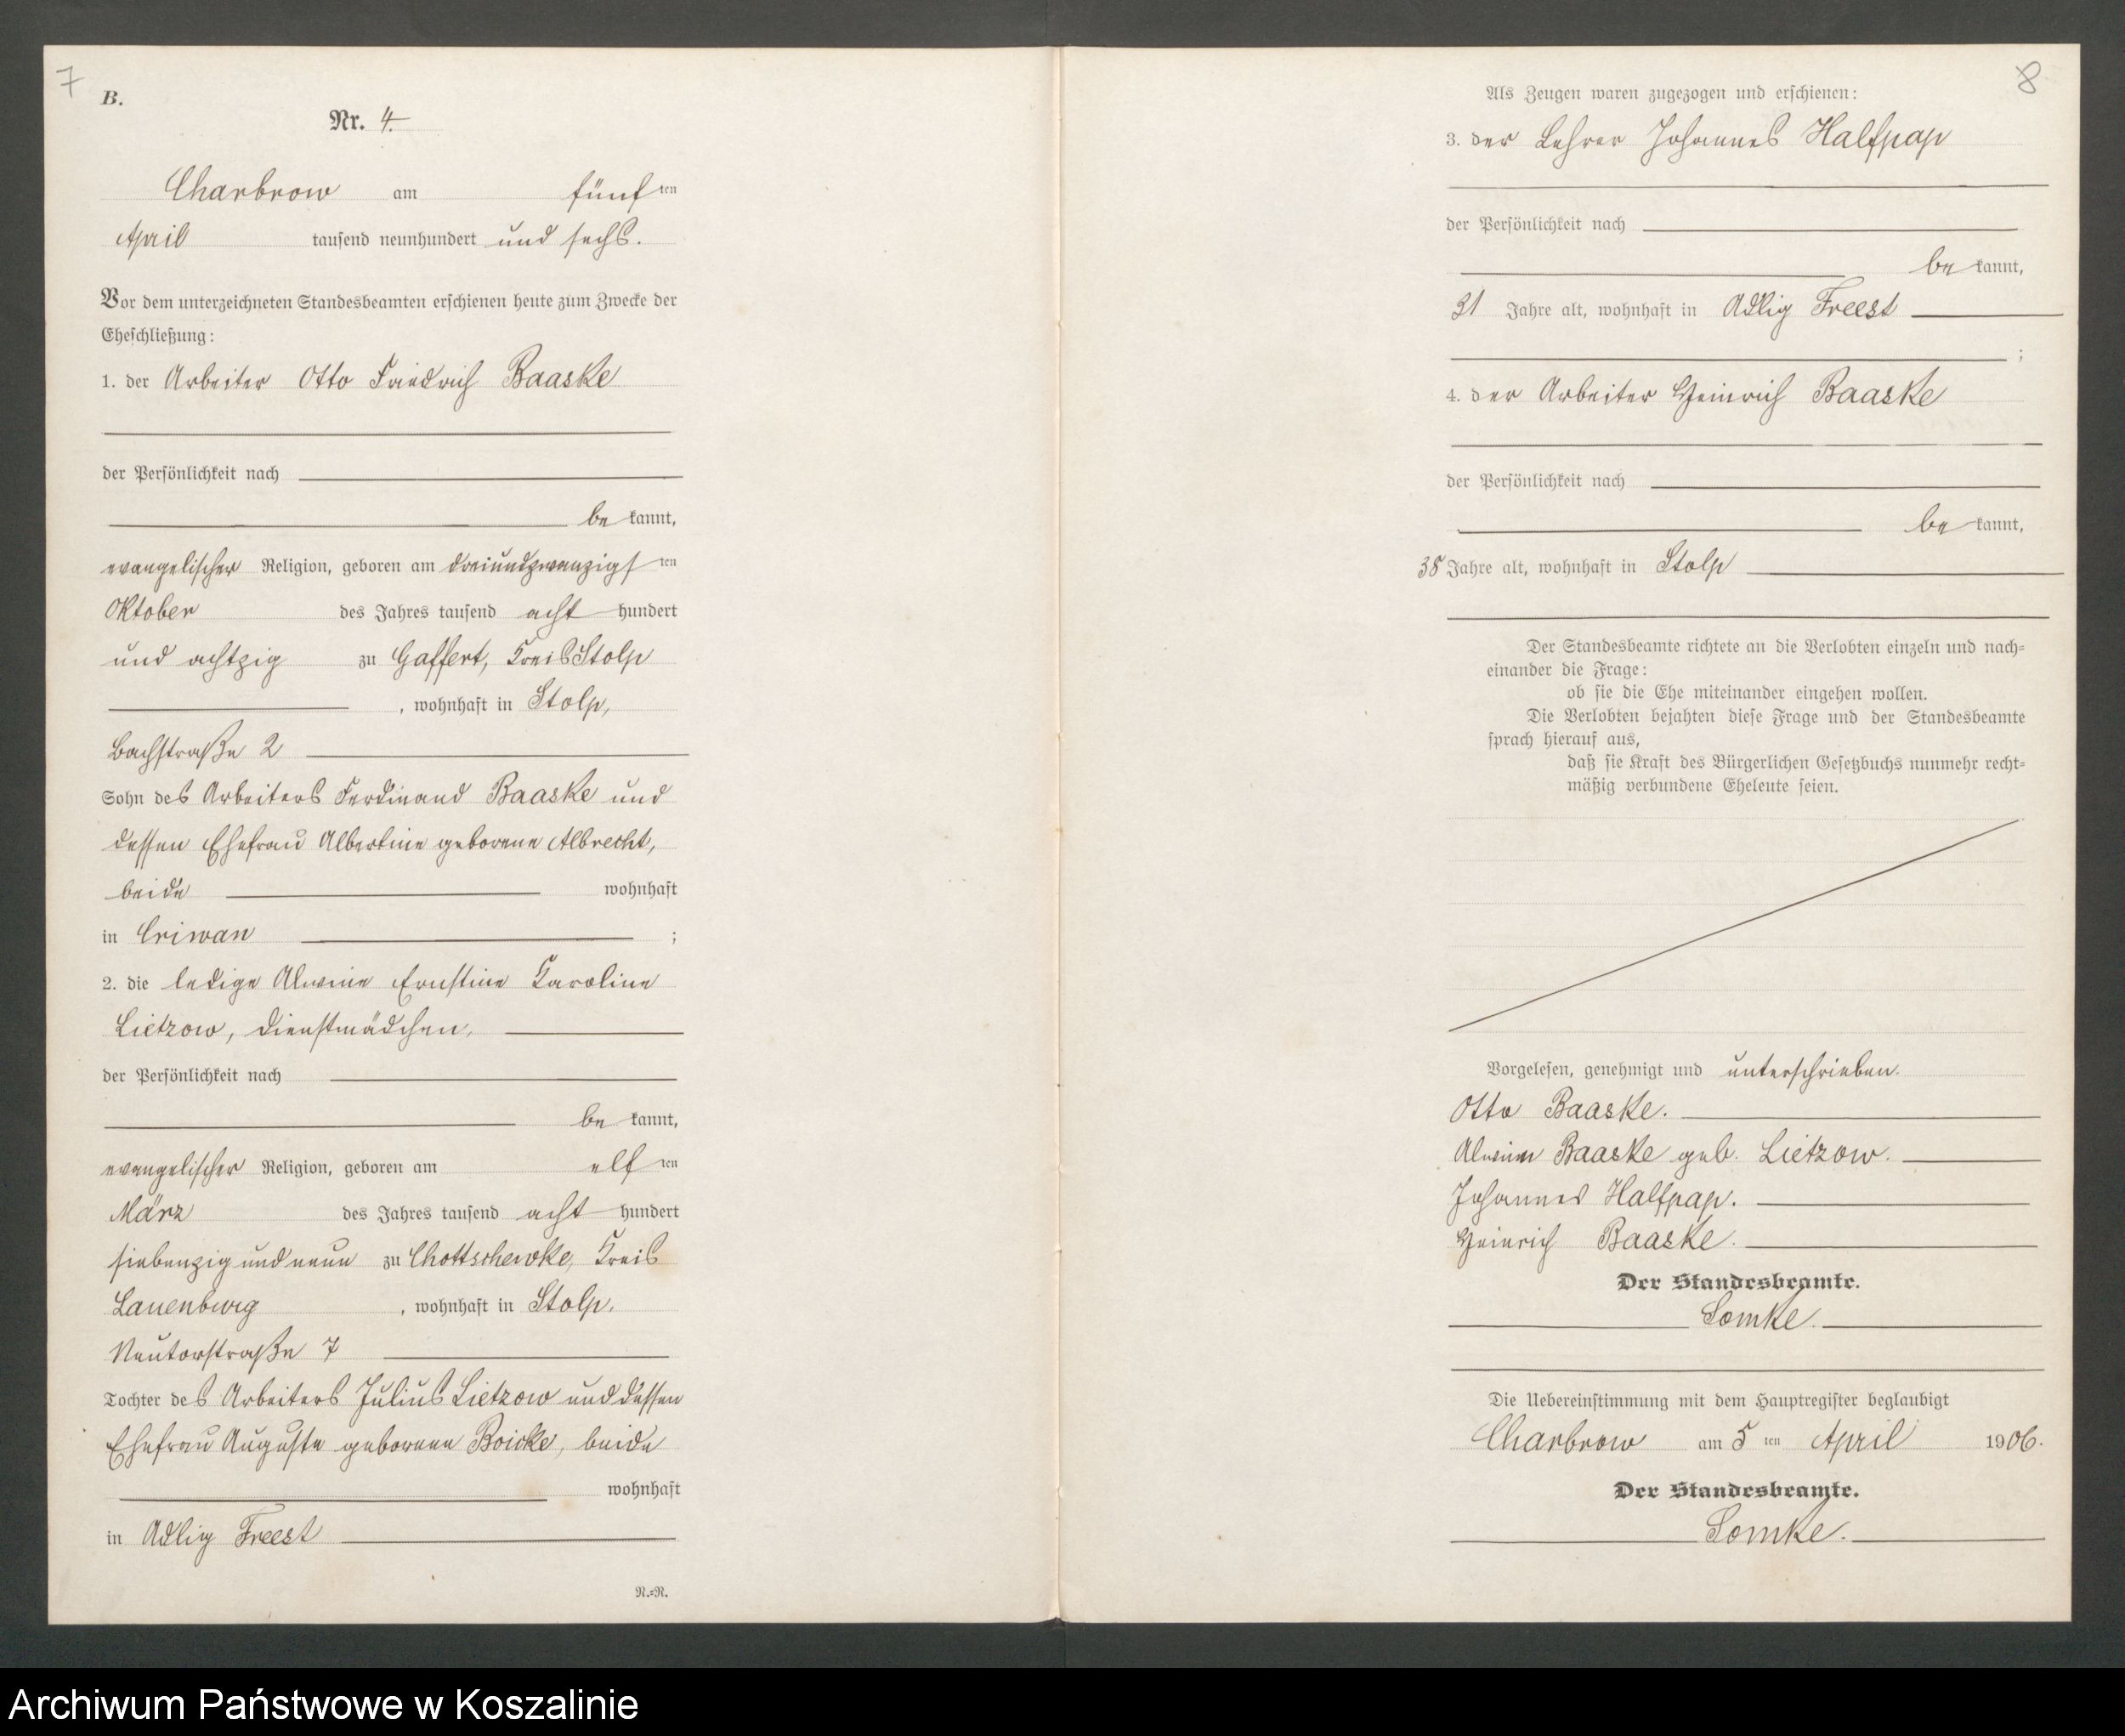 7
B.
Nr. 4.
Charbrow am fünften
April tausend neunhundert und sechs.
Vor dem unterzeichneten Standesbeamten erschienen heute zum Zwecke der
Eheschließung:
1. der Arbeiter Otto Friedrich Baaske
der Persönlichkeit nach
be kannt,
evangelischer Religion, geboren am dreiundzwanzigsten
Oktober des Jahres tausend acht hundert
und achtzig zu Gaffert, Kreis Stolp
, wohnhaft in Stolp,
Bachstraße 2
Sohn des Arbeiters Ferdinand Baaske und
dessen Ehefrau Albertine geborene Albrecht,
beide wohnhaft
in Criwan ;
2. die ledige Alwine Ernstine Karoline
Lietzow, Dienstmädchen,
der Persönlichkeit nach
be kannt,
evangelischer Religion, geboren am elften
März des Jahres tausend acht hundert
siebenzig und neun zu Chottschewke, Kreis
Lauenburg , wohnhaft in Stolp,
Neutorstraße 7
Tochter des Arbeiters Julius Lietzow und dessen
Ehefrau Auguste geborene Boicke, beide
wohnhaft
in Adlig Freest
N.=N.
8
Als Zeugen waren zugezogen und erschienen:
3. der Lehrer Johannes Halfpap
der Persönlichkeit nach
be kannt,
31 Jahre alt, wohnhaft in Adlig Freest
;
4. der Arbeiter Heinrich Baaske
der Persönlichkeit nach
be kannt,
38 Jahre alt, wohnhaft in Stolp
Der Standesbeamte richtete an die Verlobten einzeln und nach=
einander die Frage:
ob sie die Ehe miteinander eingehen wollen.
Die Verlobten bejahten diese Frage und der Standesbeamte
sprach hierauf aus,
daß sie Kraft des Bürgerlichen Gesetzbuchs nunmehr recht=
mäßig verbundene Eheleute seien.
Vorgelesen, genehmigt und unterschrieben.
Otto Baaske.
Alwine Baaske geb. Lietzow.
Johannes Halfpap.
Heinrich Baaske.
Der Standesbeamte.
Lomke.
Die Uebereinstimmung mit dem Hauptregister beglaubigt
Charbrow am 5 ten April 1906.
Der Standesbeamte.
Lomke.
Archiwum Państwowe w Koszalinie